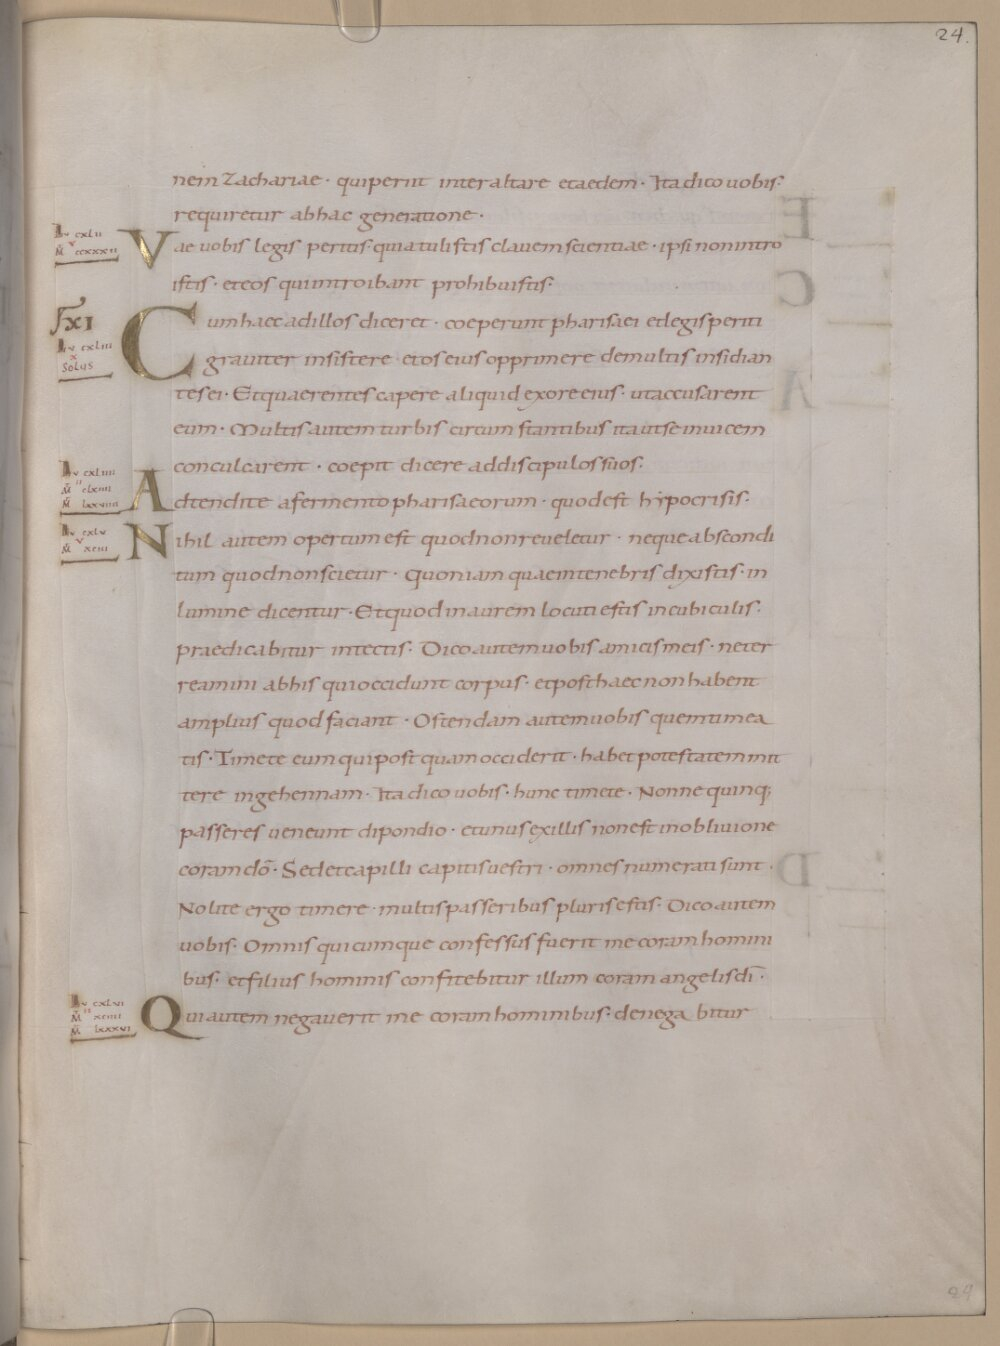 24.
nem Zachariae · qui periit inter altare et aedem · Ita dico uobis·
requiretur ab hac generatione ·
Lv cxlii
M ccxxxii
Vae uobis legis peritis· quia tulistis clauem scientiae · ipsi non intro
istis · et eos qui introibant prohibuistis·
XI
Cum haec ad illos diceret · coeperunt pharisaei et legis periti
Lv cxliii
x
Solus
grauiter insistere · et os eius opprimere de multis insidian
tes ei · Et quaerentes capere aliquid ex ore eius · ut accusarent
eum · Multis autem turbis circum stantibus ita ut se inuicem
conculcarent · coepit dicere ad discipulos suos·
Lv cxliiii
M clxiiii
M lxxviiii
Adtendite a fermento pharisaeorum · quod est hypocrisis·
Lv cxlv
M xciii
Nihil autem opertum est quod non reueletur · neque abscondi
tum quod non scietur · Quoniam quae in tenebris dixistis · in
lumine dicentur · Et quod in aurem locuti estis in cubiculis·
praedicabitur in tectis· Dico autem uobis amicis meis · ne ter
reamini ab his qui occidunt corpus · et post haec non habent
amplius quod faciant · Ostendam autem uobis quem timea
tis · Timete eum qui post quam occiderit · habet potestatem mit
tere in gehennam · Ita dico uobis · hunc timete · Nonne quinq;
passeres ueneunt dipondio · et unus ex illis non est in obliuione
coram dō · Sed et capilli capitis uestri · omnes numerati sunt ·
Nolite ergo timere · multis passeribus pluris estis· Dico autem
uobis· Omnis quicumque confessus fuerit in me coram homini
bus· et filius hominis confitebitur in illum coram angelis dī ·
Lv cxlvi
M xciiii
M lxxxvi
Qui autem negauerit me coram hominibus · denegabitur
24